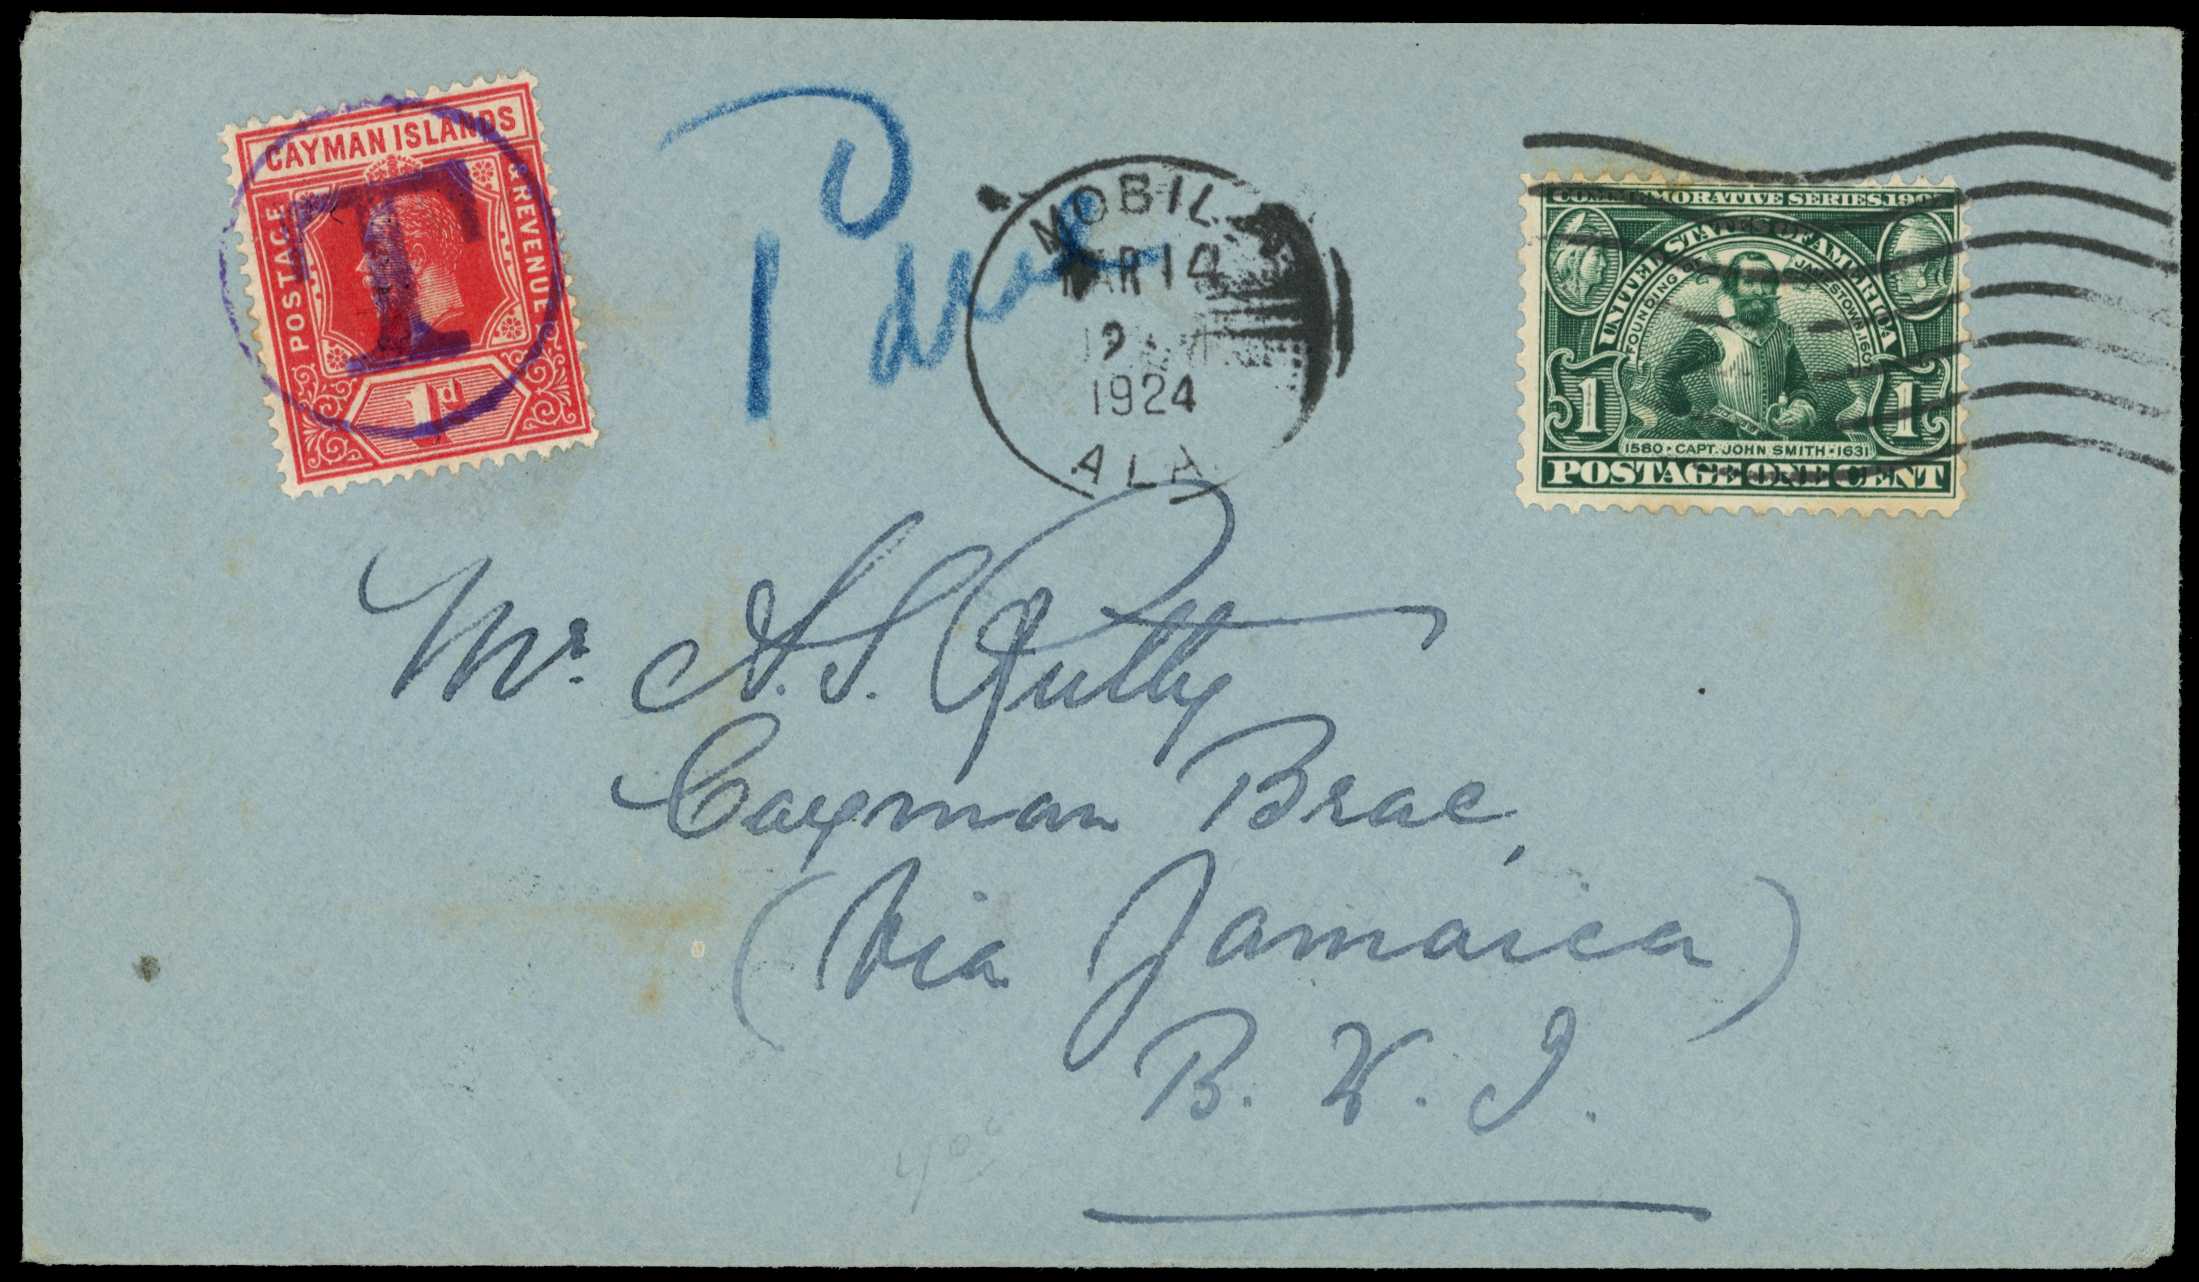 CAYMAN ISLANDS
POSTAGE & REVENUE
1d
T
1d due
MOBILE
MAR 14
12
1924
ALA.
COMMEMORATIVE SERIES 1907
UNITED STATES OF AMERICA
FOUNDING OF JAMESTOWN 1607
1 1
1580 · CAPT. JOHN SMITH · 1631
POSTAGE ONE CENT
Mr. A. S. Rutty
Cayman Brac,
(Via Jamaica)
B. W. I.